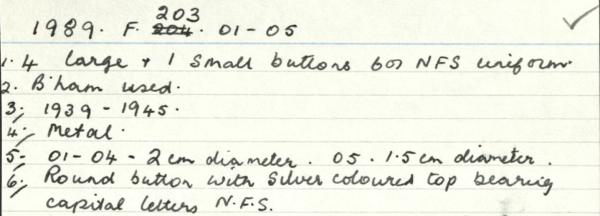 203
1989. F. 204. 01-05
1. 4 large + 1 small buttons for NFS uniform.
2. B'ham used.
3. 1939 - 1945.
4. Metal.
5. 01-04 - 2cm diameter. 05. 1.5cm diameter.
6. Round button with silver coloured top bearing
capital letters N.F.S.